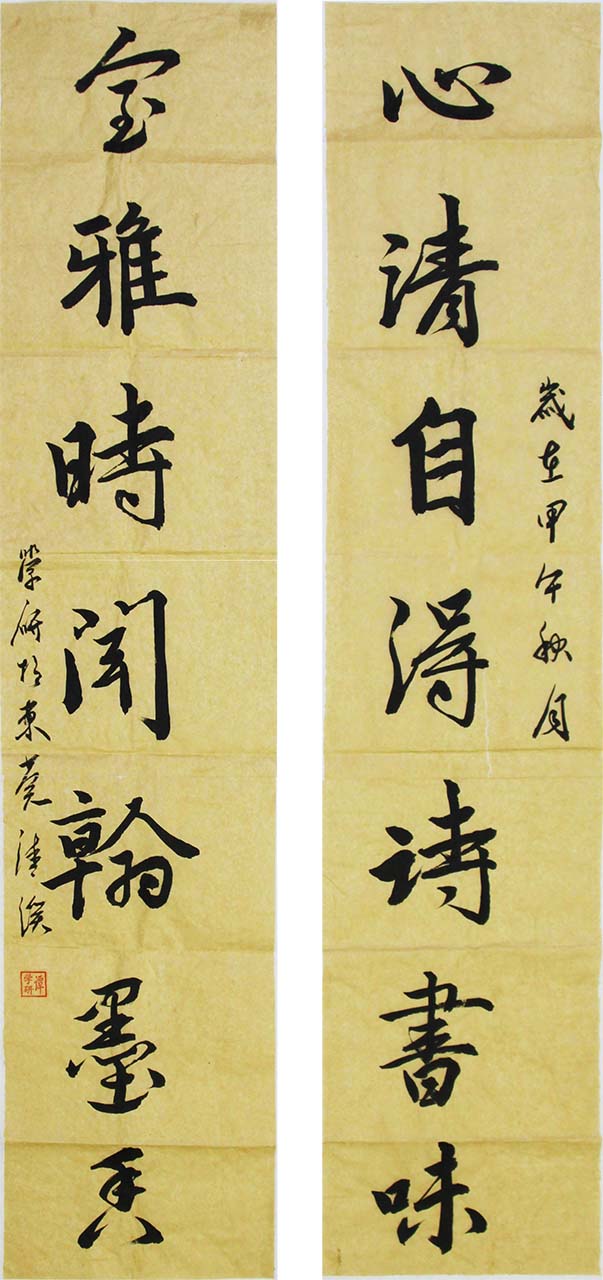 心清自得詩書味
歲在甲午秋月
室雅時聞翰墨香
學研於東莞清溪
譚学研